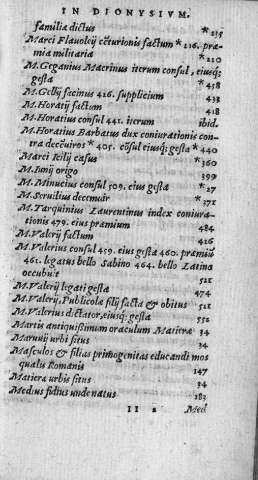 IN DIONYSIVM.
familia dictus * 235
Marci Flauoleij cēturionis factum * 216. præ-
mia militaria * 220
M.Geganius Macrinus iterum consul, eiusq;
gesta * 458
M.Gellij facinus 426. supplicium 433
M.Horatij factum 418
M.Horatius consul 441. iterum ibid.
M.Horatius Barbatus dux coniurationis con-
tra decēuiros * 405. cōsul eiusq; gesta * 440
Marci Icilij casus * 360
M.Iunij origo 399
M.Minucius consul 509. eius gesta * 27
M.Seruilius decemuir * 371
M.Tarquinius Laurentinus index coniura-
tionis 479. eius præmium 484
M.Valerij factum 426
M.Valerius consul 459. eius gesta 460. præmiū
461. legatus bello Sabino 464. bello Latino
occubuit 521
M.Valerij legati gesta 474
M.Valerij, Publicolæ filij facta & obitus 521
M.Valerius dictator, eiusq; gesta 552
Martis antiquißimum oraculum Matieræ 34
Maruuij urbi situs 34
Masculos & filias primogenitas educandi mos
qualis Romanis 147
Matiera urbis situs 34
Medius fidius unde natus 183
II 2 Med